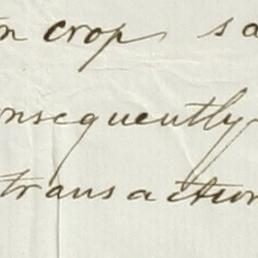 n crop sa
onsequently
transaction